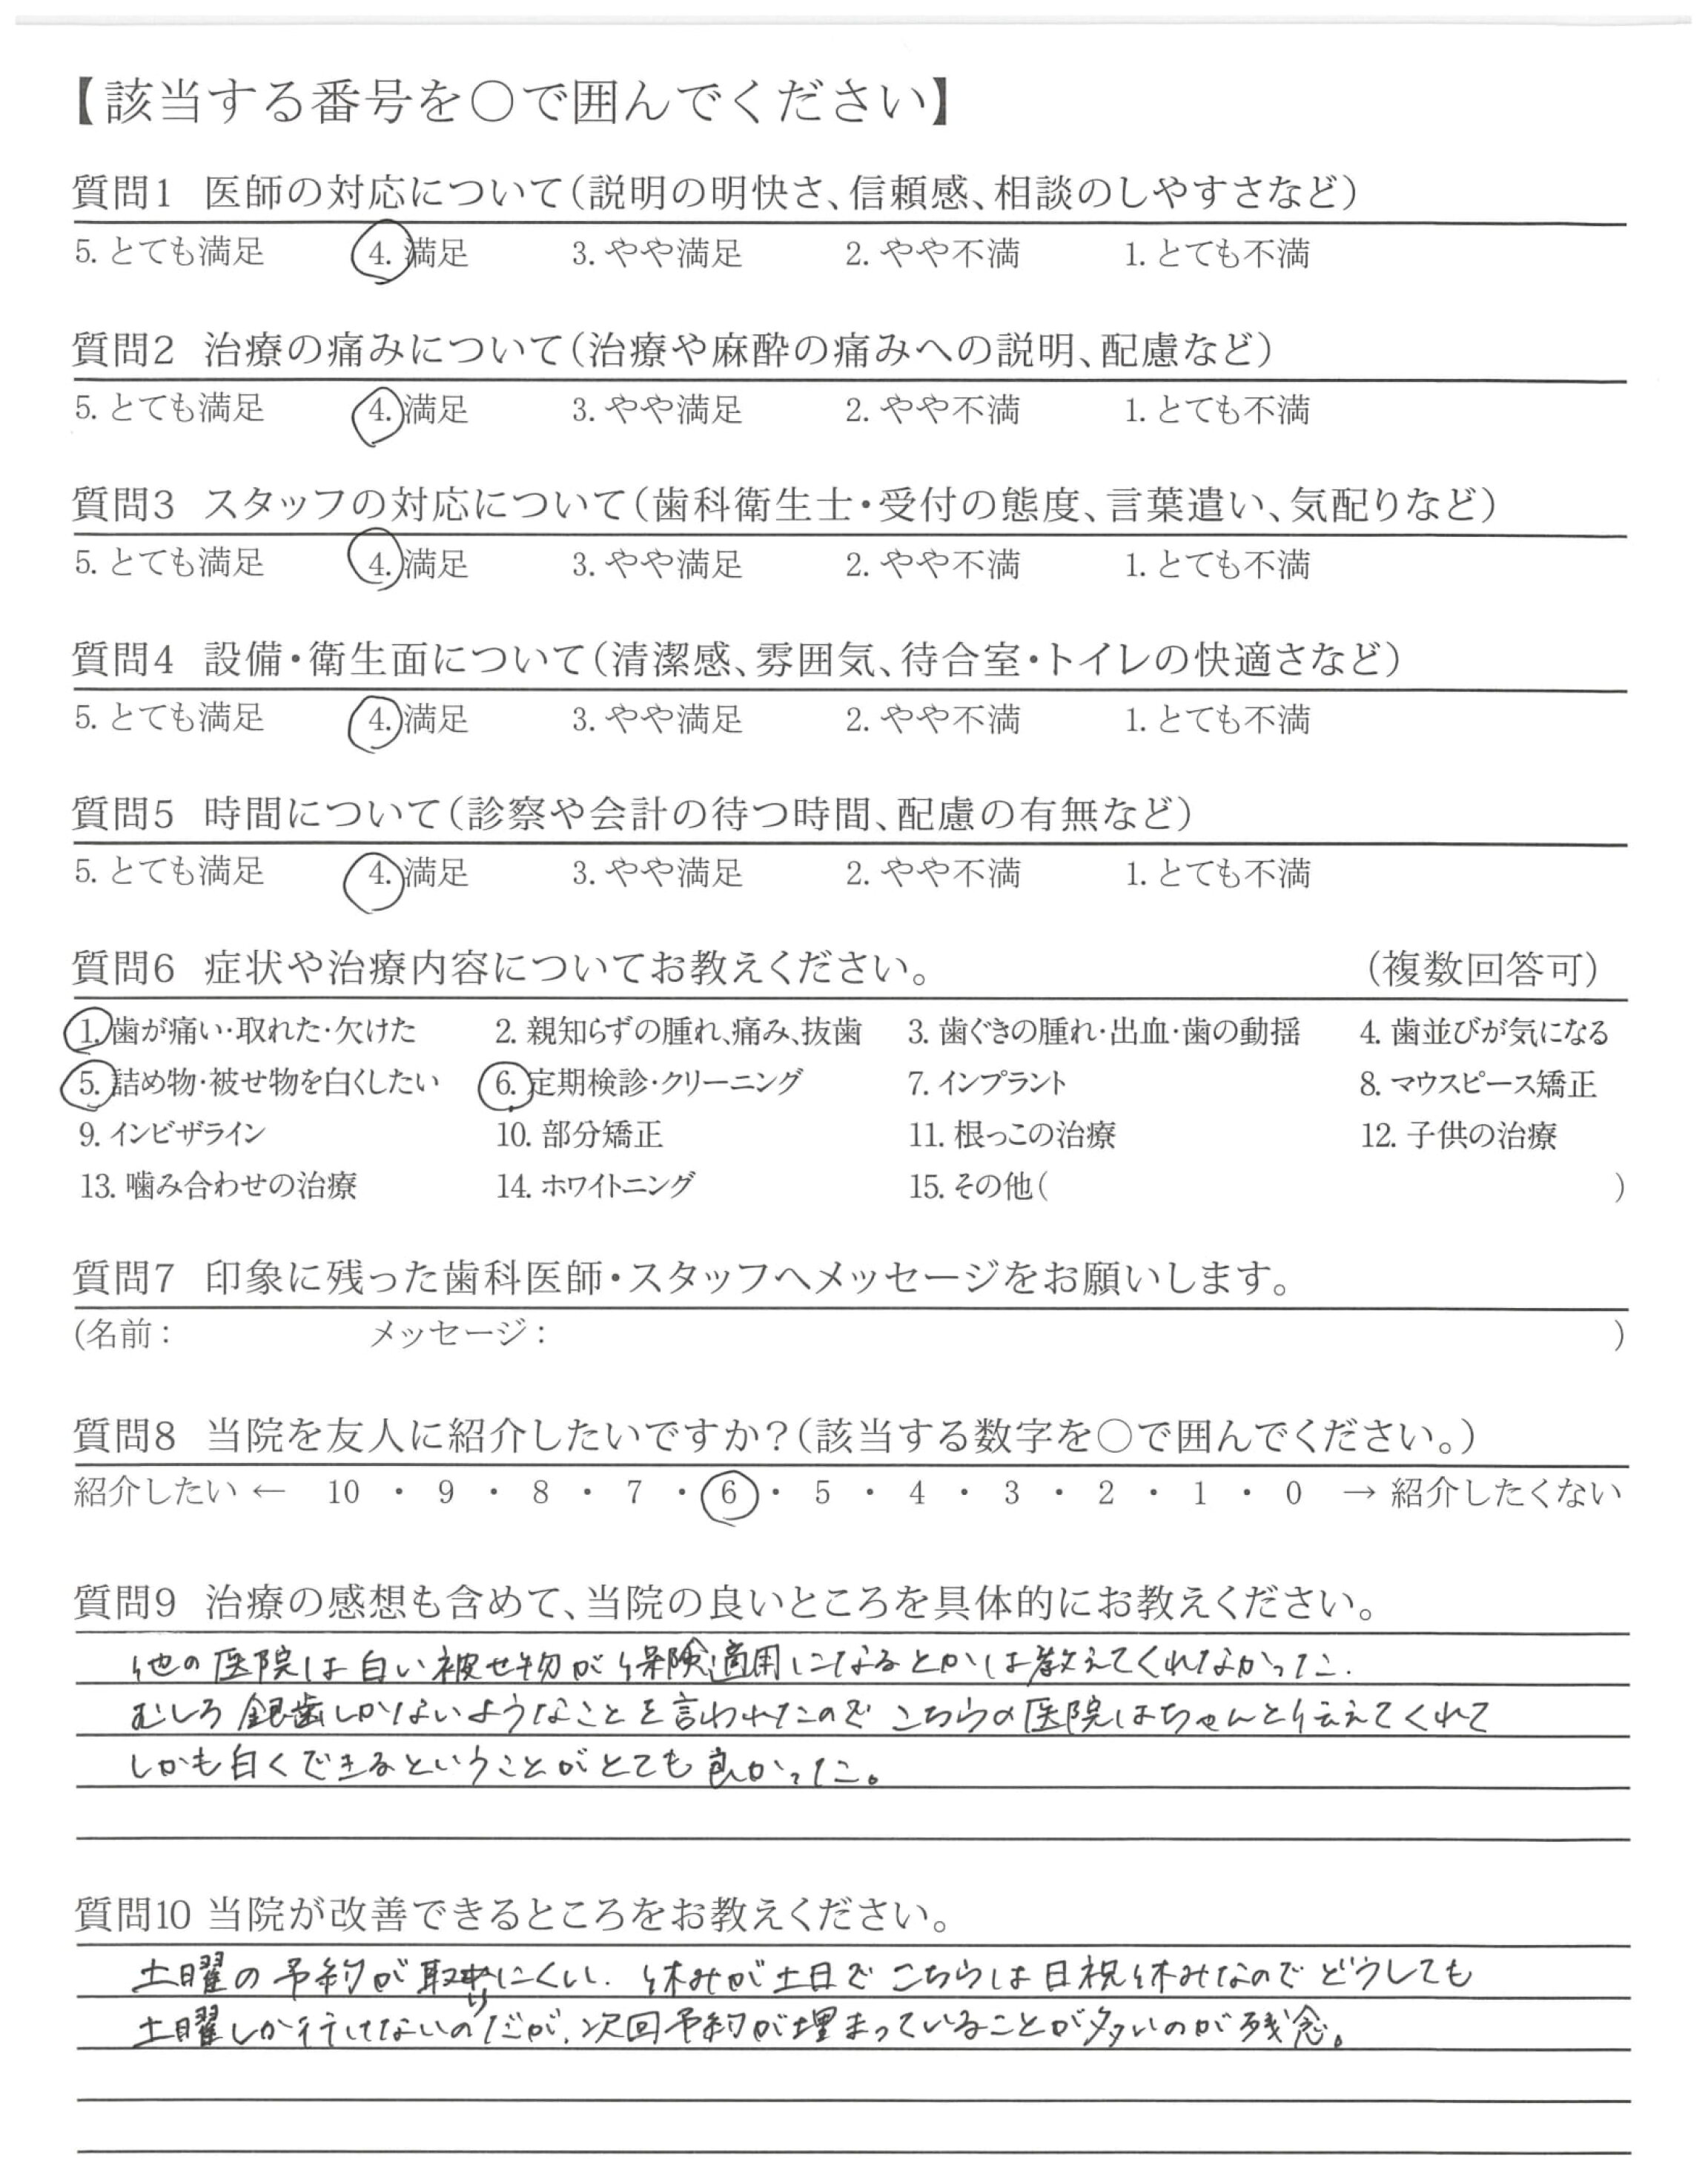 【該当する番号を○で囲んでください】
質問1 医師の対応について(説明の明快さ、信頼感、相談のしやすさなど)
5. とても満足 4. 満足 3. やや満足 2. やや不満 1. とても不満
質問2 治療の痛みについて(治療や麻酔の痛みへの説明、配慮など)
5. とても満足 4. 満足 3. やや満足 2. やや不満 1. とても不満
質問3 スタッフの対応について(歯科衛生士・受付の態度、言葉遣い、気配りなど)
5. とても満足 4. 満足 3. やや満足 2. やや不満 1. とても不満
質問4 設備・衛生面について(清潔感、雰囲気、待合室・トイレの快適さなど)
5. とても満足 4. 満足 3. やや満足 2. やや不満 1. とても不満
質問5 時間について(診察や会計の待つ時間、配慮の有無など)
5. とても満足 4. 満足 3. やや満足 2. やや不満 1. とても不満
質問6 症状や治療内容についてお教えください。 (複数回答可)
1. 歯が痛い・取れた・欠けた 2. 親知らずの腫れ、痛み、抜歯 3. 歯ぐきの腫れ・出血・歯の動揺 4. 歯並びが気になる
5. 詰め物・被せ物を白くしたい 6. 定期検診・クリーニング 7. インプラント 8. マウスピース矯正
9. インビザライン 10. 部分矯正 11. 根っこの治療 12. 子供の治療
13. 噛み合わせの治療 14. ホワイトニング 15. その他( )
質問7 印象に残った歯科医師・スタッフへメッセージをお願いします。
(名前: メッセージ: )
質問8 当院を友人に紹介したいですか?(該当する数字を○で囲んでください。)
紹介したい ← 10 ・ 9 ・ 8 ・ 7 ・ 6 ・ 5 ・ 4 ・ 3 ・ 2 ・ 1 ・ 0 → 紹介したくない
質問9 治療の感想も含めて、当院の良いところを具体的にお教えください。
他の医院は白い被せ物が保険適用になるとかは教えてくれなかった.
むしろ銀歯しかないようなことを言われたので こちらの医院はちゃんと伝えてくれて
しかも白くできるということがとても良かった。
質問10 当院が改善できるところをお教えください。
土曜の予約が取りにくい. 休みが土日で こちらは日祝休みなので どうしても
土曜しか行けないのだが、次回予約が埋まっていることが多いのが残念。